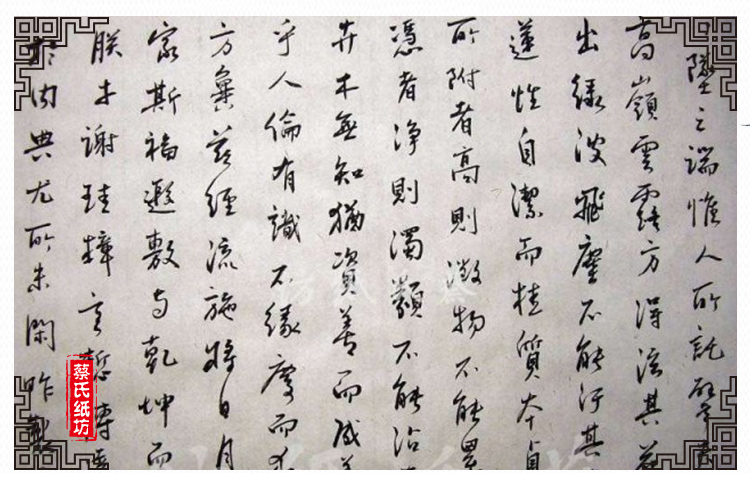 墜之端惟人所託譬
高嶺雲露方得泫其花
出綠波飛塵不能汙其
蓮性自潔而桂質本貞
所附者高則微物不能累
憑者淨則濁類不能沾
卉木無知猶資善而成善
乎人倫有識不緣慶而求
方冀茲經流施將日月
窮斯福遐敷與乾坤而
朕才謝珪璋言慙博
於內典尤所未閑昨製
蔡氏纸坊